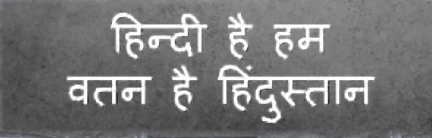 हिन्दी है हम
वतन है हिंदुस्तान